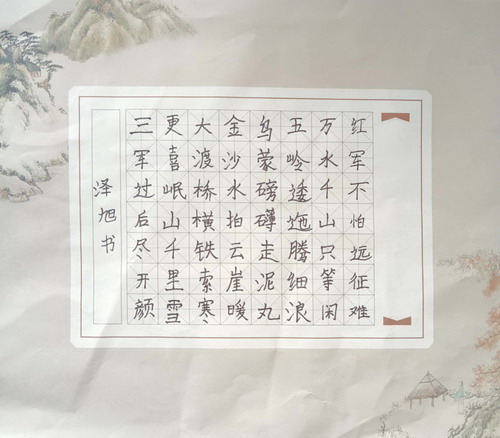 红军不怕远征难
万水千山只等闲
五岭逶迤腾细浪
乌蒙磅礴走泥丸
金沙水拍云崖暖
大渡桥横铁索寒
更喜岷山千里雪
三军过后尽开颜
泽旭书